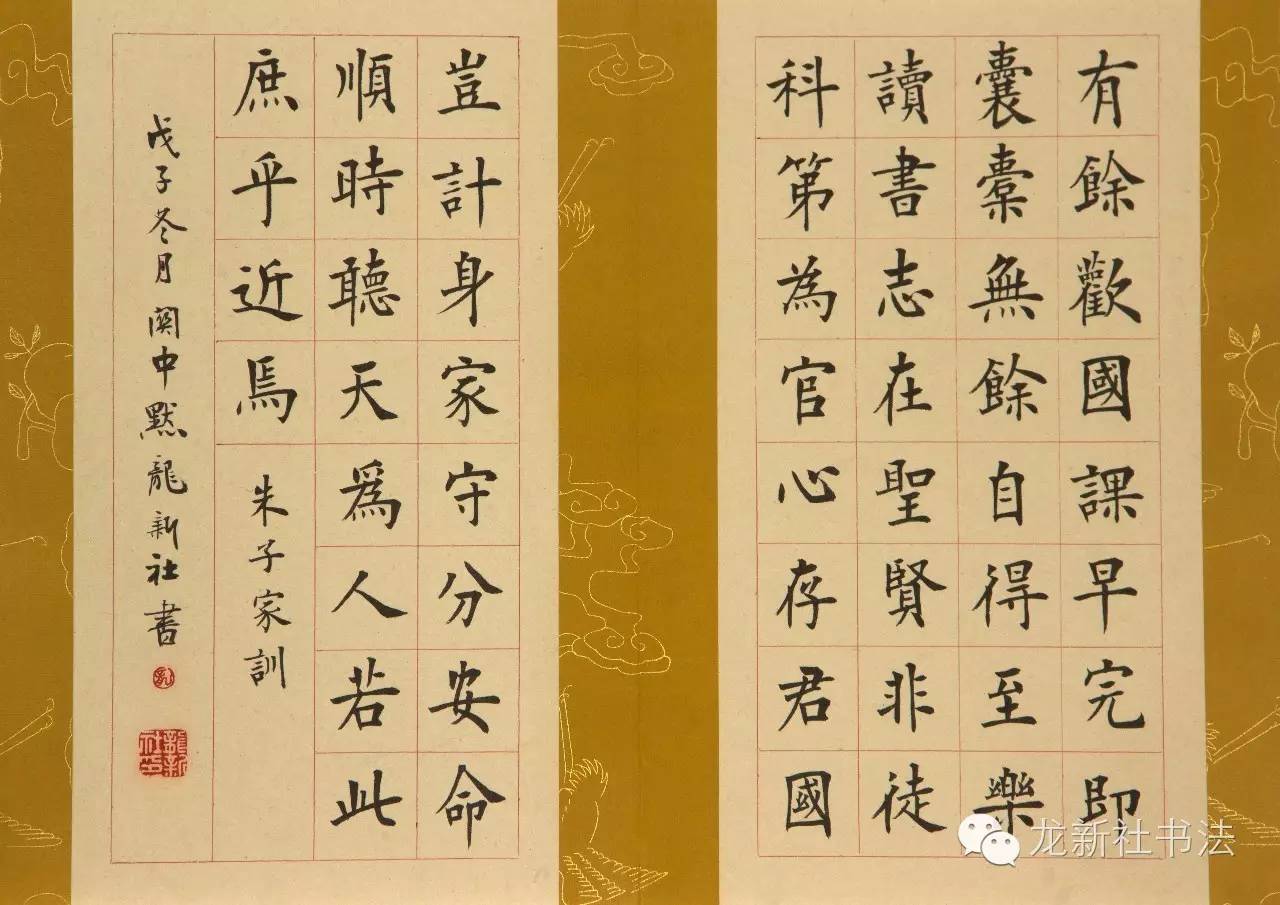 有餘歡國課早完即
囊橐無餘自得至樂
讀書志在聖賢非徒
科第為官心存君國
豈計身家守分安命
順時聽天爲人若此
庶乎近焉
朱子家訓
戊子冬月關中默龍新社書
龍新社印
龙新社书法